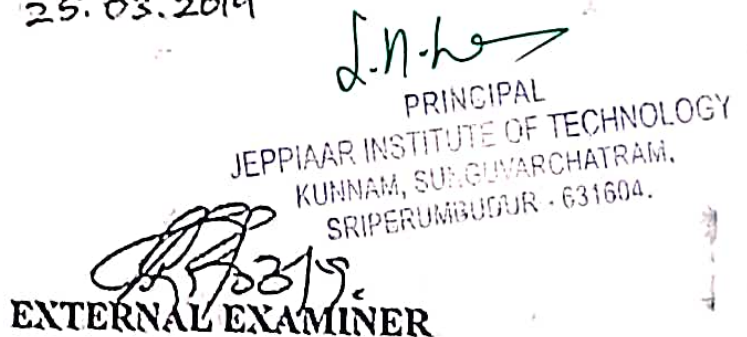 25.03.2019
PRINCIPAL
JEPPIAAR INSTITUTE OF TECHNOLOGY
KUNNAM, SUNGUVARCHATRAM,
SRIPERUMBUDUR - 631604.
EXTERNAL EXAMINER